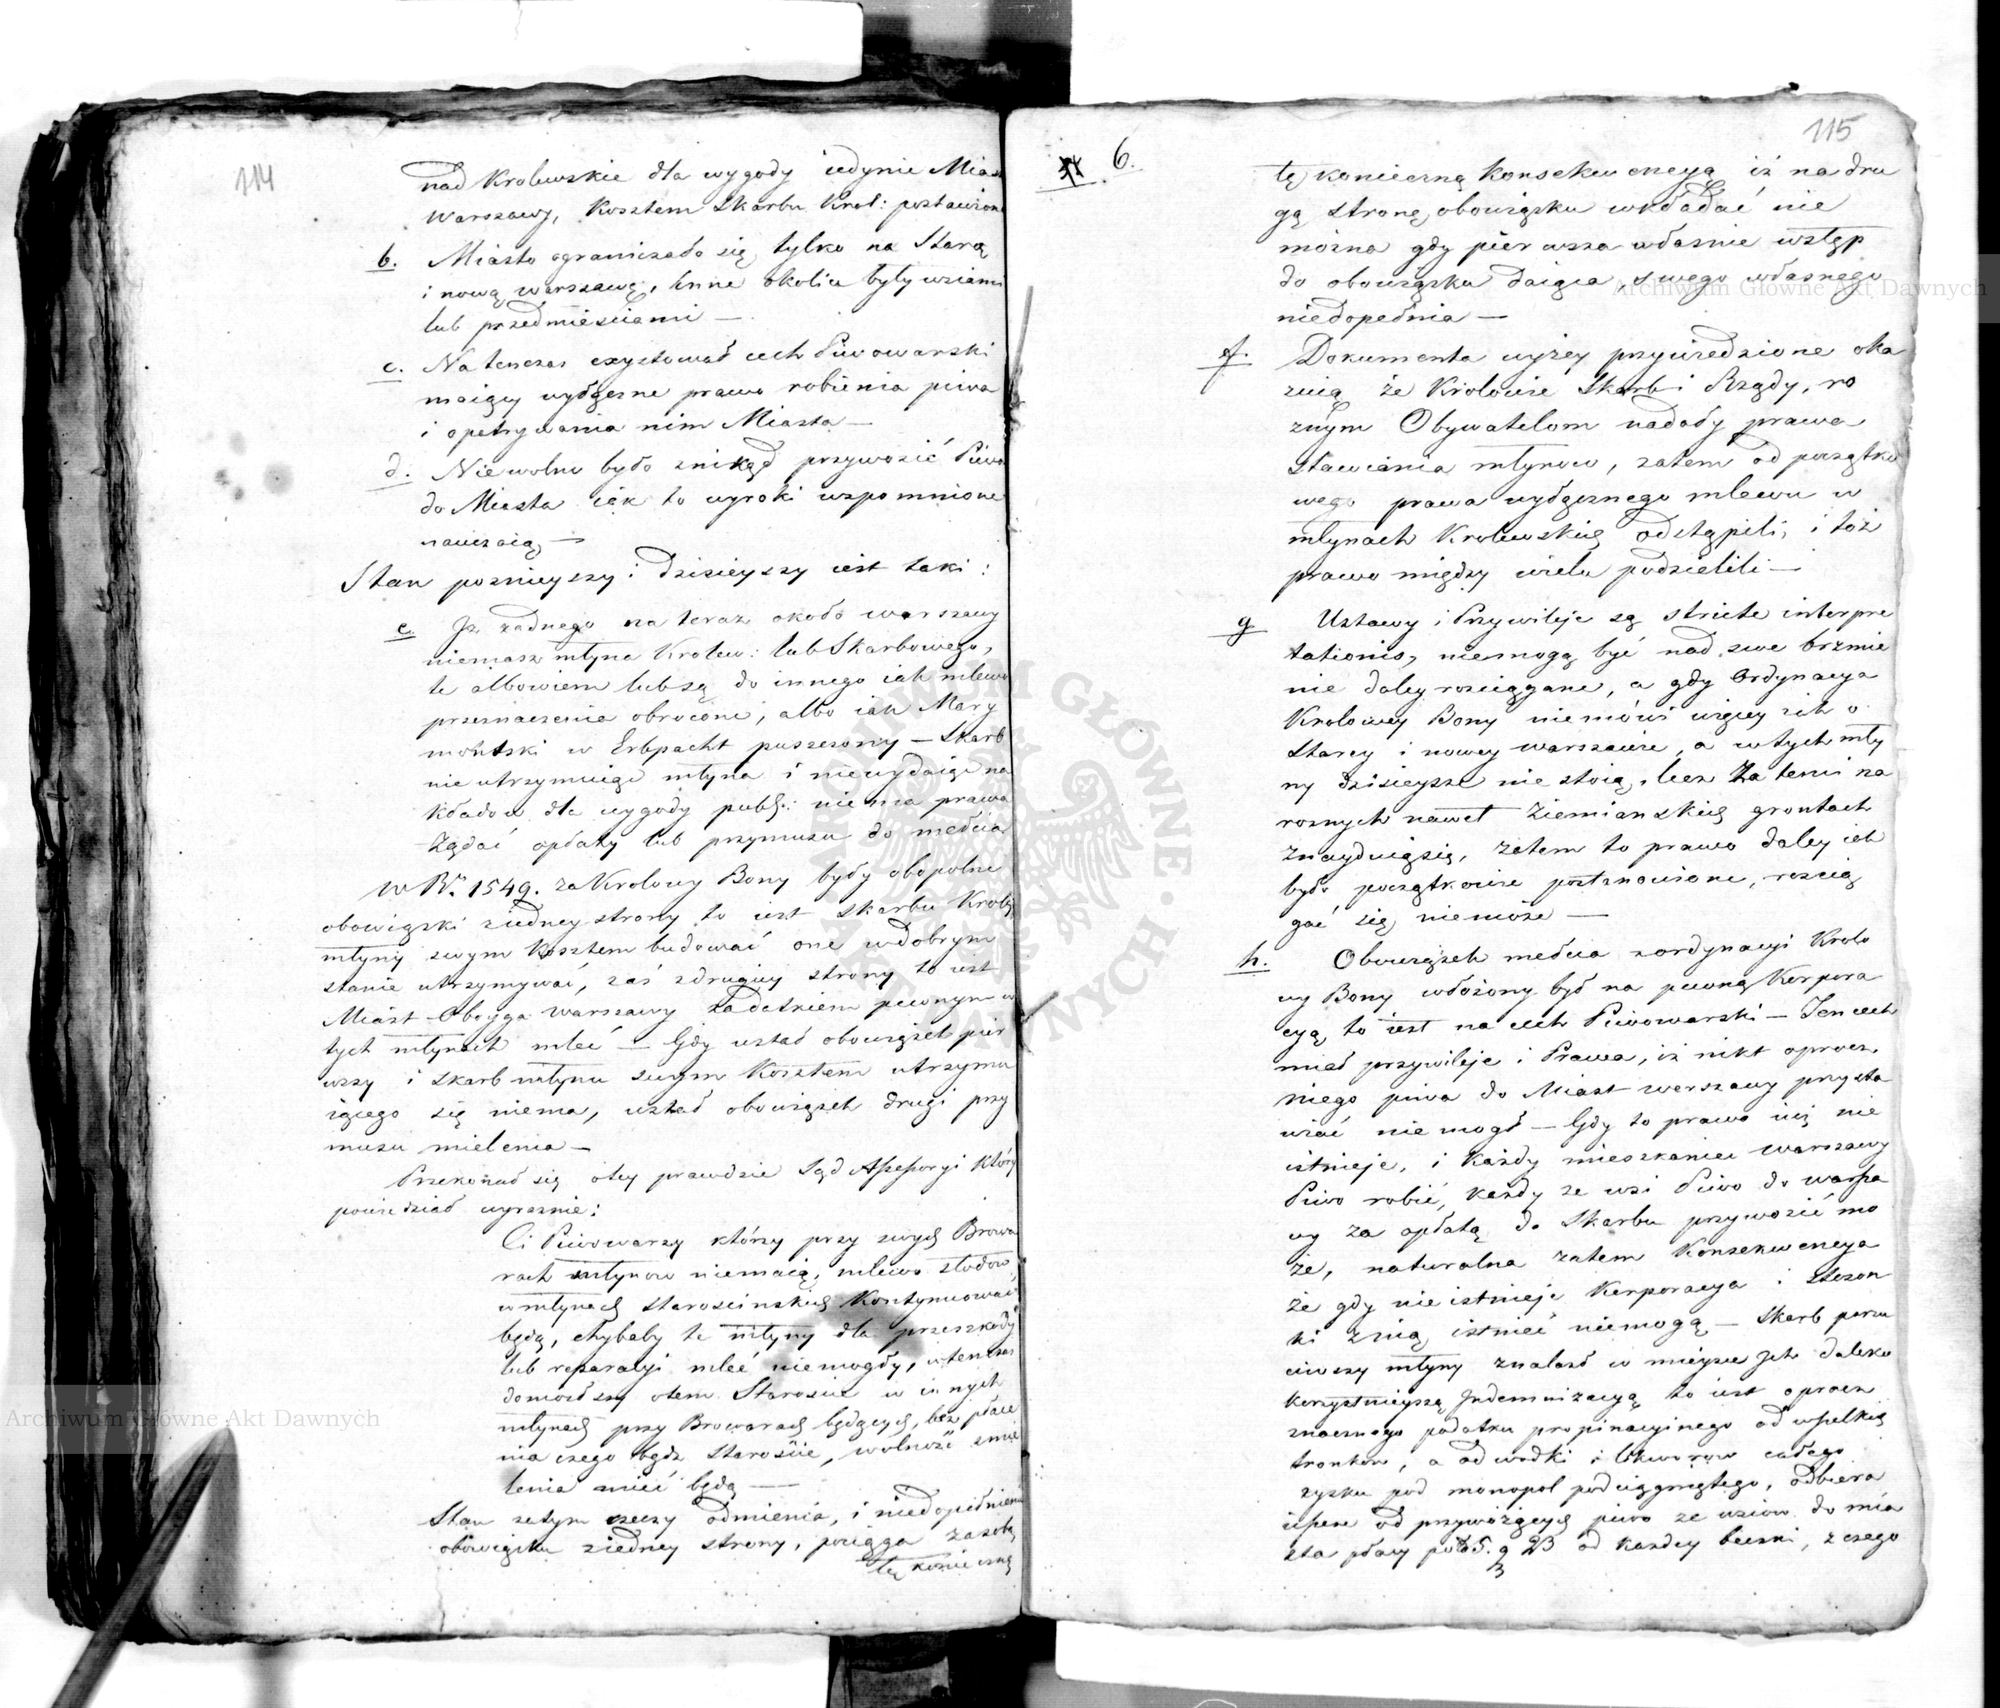 114
nad Krolewskie dla wygody iedynie Miast
Warszawy, kosztem Skarbu Krol: postawione
b. Miasto ograniczało się tylko na Starą
i nową warszawę, inne okolice były wsiami
lub przedmieściami —
c. Natenczas exystował cech Piwowarski
maiący wyłączne prawo robienia piwa
i opatrywania nim Miasta —
d. Niewolno było znikąd przywozić Piwa
do Miasta iak to wyroki wspomnione
nauczaią —
Stan poznieyszy i dzisieyszy iest taki:
e. Iż żadnego na teraz około warszawy
niemasz młyna Krolew: lub Skarbowego,
te albowiem lub są do innego iak mlewo
przeznaczenia obrocone, albo iak Mary
montski w Erbpacht puszczony — Skarb
nie utrzymuiąc młyna i niewydaiąc na
kładow dla wygody publ: niema prawa
żądać opłaty lub przymusu do mełcia
w R. 1549. za Krolowy Bony były obopolne
obowiązki ziedney strony to iest Skarbu Krol:
młyny swym kosztem budować one w dobrym
stanie utrzymywać, zaś zdrugiey strony to iest
Miast Oboyga Warszawy zadatkiem pewnym w
tych młynach mleć — Gdy ustał obowiązek pier
wszy i skarb młynu swym kosztem utrzymu
iącego się niema, ustał obowiązek drugi przy
musu mielenia —
Przekonał się o tey prawdzie Sąd Assessoryi który
powiedział wyraznie:
Ci Piwowarzy którzy przy swych Browa
rach młynow niemaią, mlewo słodow
w młynach Starościnskich kontynuować
będą, chybaby te młyny dla przeszkody
lub reparacyi mleć niemogły, wtenczas
doniosłszy o tem Starosćie w innych
młynach przy Browarach będących, bez płace
nia czego bądz Staroście, wolność zmie
lenia mieć będą —
Stan zatym rzeczy odmienia, i niedopełnienie
obowiązku ziedney strony, pociąga zasobą
tę konieczną
115
6.
tę konieczną konsekwencyą iż na dru
gą stronę obowiązku wkładać nie
można gdy pierwsza własnie wstęp
do obowiązku daiąca swego własnego
niedopełnia —
f. Dokumenta wyżey przywiedzione oka
zuią że Krolowie Skarb i Rządy, ro
znym Obywatelom nadały prawa
Stawiania młynow, zatem od początko
wego prawa wyłącznego mlewu w
młynach Krolewskich odstąpili, i toż
prawo między wielu podzielili —
g Ustawy i Przywileje są stricte interpre
tationis, niemogą być nad swe brzmie
nie daley rosciągane, a gdy Ordynacya
Krolowey Bony niemówi więcey iak o
Starey i nowey warszawie, a w tych mły
ny dzisieysze nie stoią, lecz za temi na
roznych nawet Ziemianskich gruntach
znayduiąsię, zatem to prawo daley iak
było początkowie postanowione, rością
gać się niemoże —
h. Obowiązek mełcia z ordynacyi Krolo
wy Bony włożony był na pewną Korpora
cyą to iest na cech Piwowarski — Ten cech
miał przywileje i Prawa, iż nikt oprocz
niego piwa do Miast warszawy przysta
wiać niemogł — Gdy to prawo iuż nie
istnieje, i każdy mieszkaniec warszawy
Piwo robić, każdy ze wsi Piwo do warsza
wy za opłatą do Skarbu przywozić mo
że, naturalna zatem konsekwencya
że gdy nieistnieje Korporacya i Stosun
ki znią istnieć niemogą — Skarb porzu
ciwszy młyny znalazł w mieysce Ich daleko
korzystnieyszą Indemnizacyą to iest oprocz
znacznego podatku propinacyinego od wszelkich
trunkow, a od wodki i likworow całego
zysku pod monopol podciągniętego, odbiera
ieszcze od przywożących piwo ze wsiow do mia
sta płacy po 5. g 23 od każdey beczki, z czego